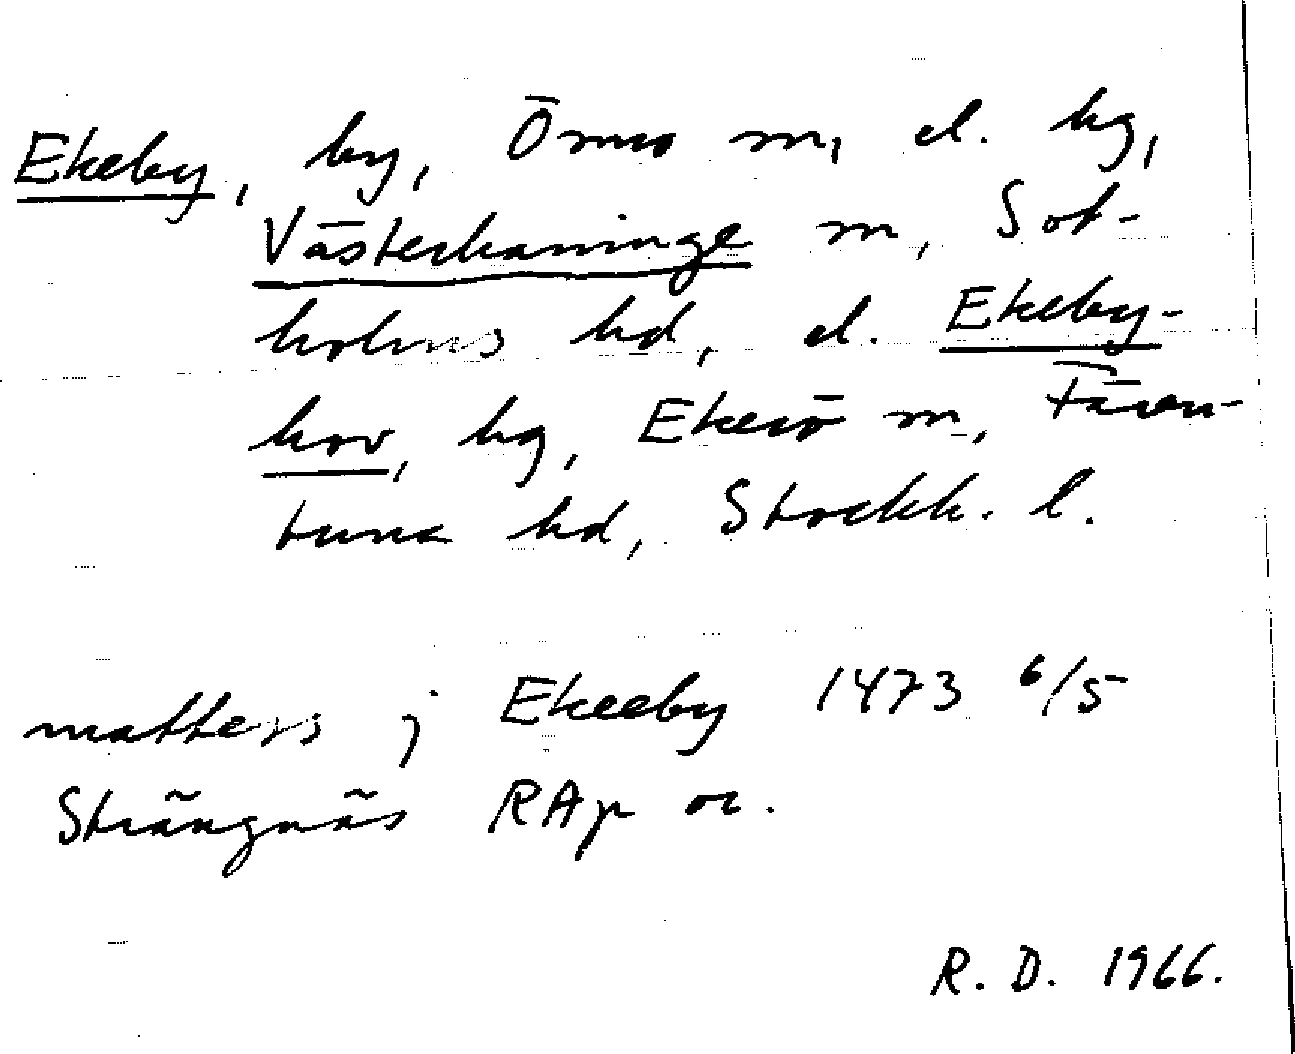 Ekeby, by, Ornö sn, el. hg,
Västerhaninge sn, Sot-
holms hd, el. Ekeby-
hov, hg, Ekerö sn, Fären-
tuna hd, Stockh. l.
mattess j Ekeeby 1473 6/5
Strängnäs RAp or.
R. D. 1966.